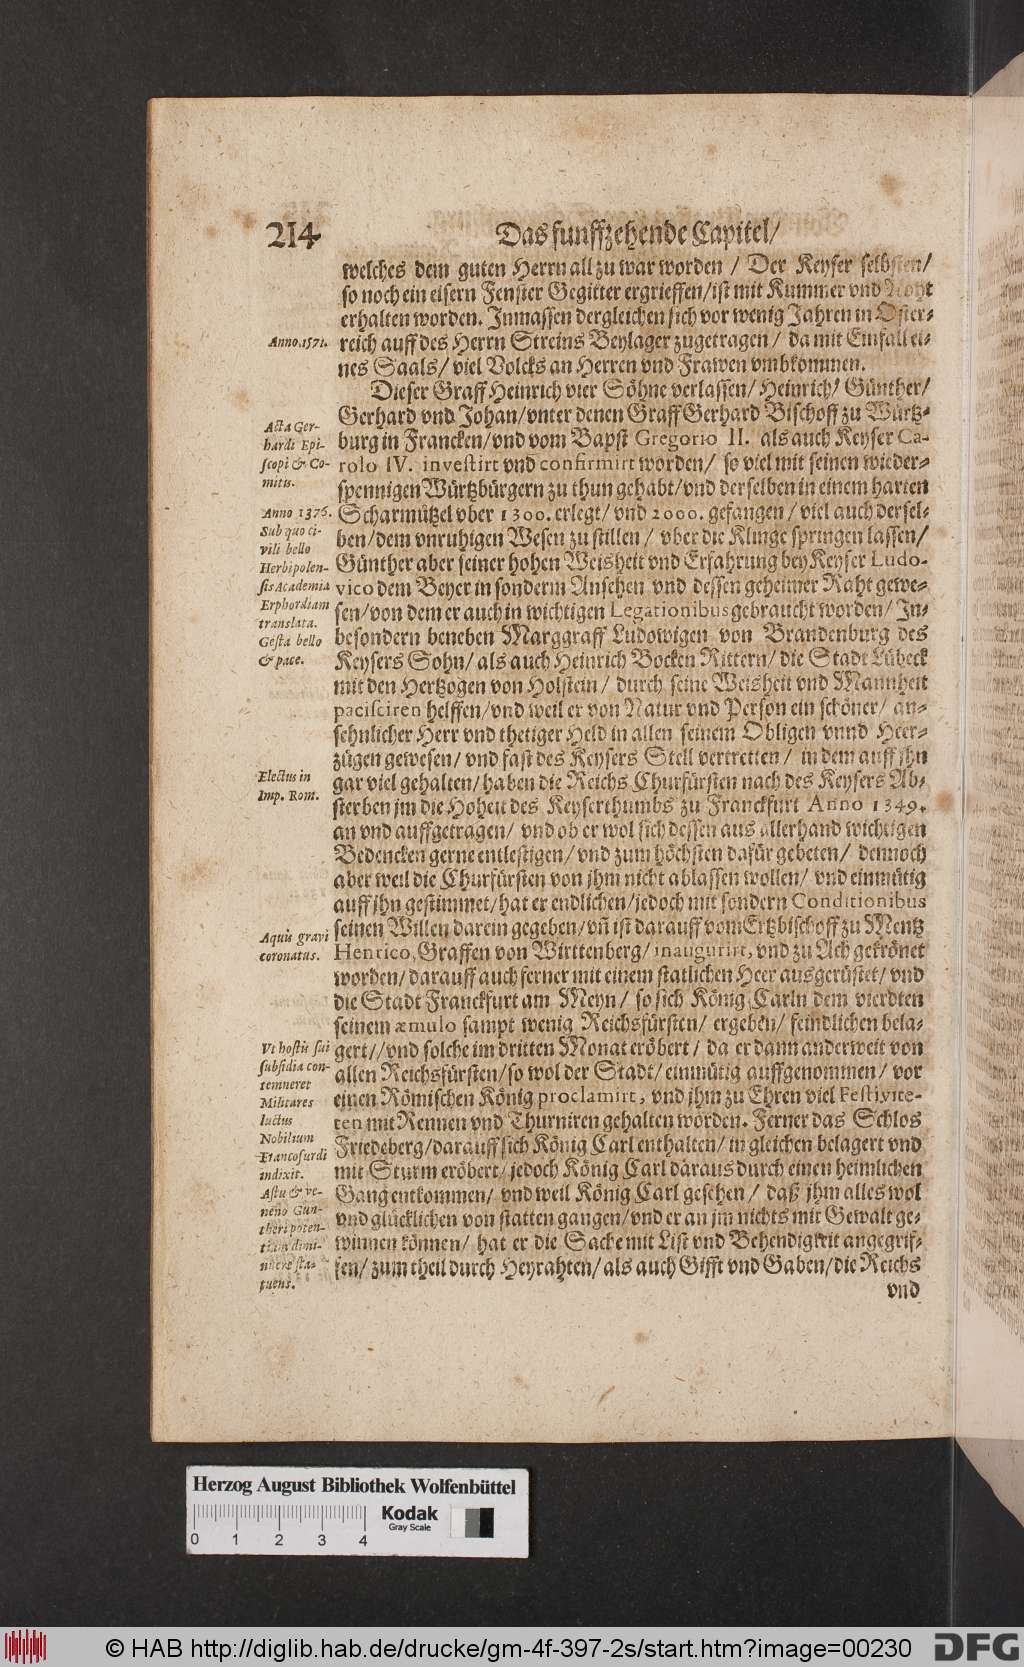 214
Das funffzehende Capitel/
welches dem guten Herrn all zu war worden / Der Keyser selbsten/
so noch ein eisern Fenster Gegitter ergrieffen/ist mit Kummer vnd Noht
erhalten worden. Inmassen dergleichen sich vor wenig Jahren in Oster-
reich auff des Herrn Streins Beylager zugetragen / da mit Einfall ei-
nes Saals/ viel Volcks an Herren vnd Frawen vmbkommen.
Dieser Graff Heinrich vier Söhne verlassen/ Heinrich/ Günther/
Gerhard vnd Johan/vnter denen Graff Gerhard Bischoff zu Würtz-
burg in Francken/vnd vom Bapst Gregorio II. als auch Keyser Ca-
rolo IV. investirt vnd confirmirt worden/ so viel mit seinen wieder-
spennigen Würtzbürgern zu thun gehabt/vnd derselben in einem harten
Scharmützel vber 1300. erlegt/ vnd 2000. gefangen/ viel auch dersel-
ben/dem vnruhigen Wesen zu stillen / vber die Klinge springen lassen/
Günther aber seiner hohen Weisheit vnd Erfahrung bey Keyser Ludo-
vico dem Beyer in sonderm Ansehen vnd dessen geheimer Raht gewe-
sen/von dem er auch in wichtigen Legationibus gebraucht worden/ In-
besondern beneben Marggraff Ludowigen von Brandenburg des
Keysers Sohn/als auch Heinrich Bocken Rittern/ die Stadt Lübeck
mit den Hertzogen von Holstein / durch seine Weisheit vnd Mannheit
pacisciren helffen/vnd weil er von Natur vnd Person ein schöner/ an-
sehnlicher Herr vnd thetiger Held in allen seinem Obligen vnnd Heer-
zügen gewesen/ vnd fast des Keysers Stell vertretten / in dem auff jhn
gar viel gehalten/haben die Reichs Churfürsten nach des Keysers Ab-
sterben jm die Hoheit des Keyserthumbs zu Franckfurt Anno 1349.
an vnd auffgetragen/ vnd ob er wol sich dessen aus allerhand wichtigen
Bedencken gerne entlestigen/vnd zum höchsten dafür gebeten/ dennoch
aber weil die Churfürsten von jhm nicht ablassen wollen/ vnd einmütig
auff jhn gestimmet/hat er endlichen/jedoch mit sondern Conditionibus
seinen Willen darein gegeben/vñ ist darauff vom Ertzbischoff zu Mentz
Henrico, Graffen von Wirttenberg/ inaugurirt, vnd zu Ach gekrönet
worden/darauff auch ferner mit einem statlichen Heer ausgerüstet/ vnd
die Stadt Franckfurt am Meyn/ so sich König Carln dem vierdten
seinem æmulo sampt wenig Reichsfürsten/ ergeben/ feindlichen bela-
gert//vnd solche im dritten Monat eröbert/ da er dann anderweit von
allen Reichsfürsten/so wol der Stadt/einmütig auffgenommen/ vor
einen Römischen König proclamirt, vnd jhm zu Ehren viel Festivite-
ten mit Rennen vnd Thurniren gehalten worden. Ferner das Schlos
Friedeberg/darauff sich König Carl enthalten/in gleichen belagert vnd
mit Sturm eröbert/jedoch König Carl daraus durch einen heimlichen
Gang entkommen/ vnd weil König Carl gesehen / daß jhm alles wol
vnd glücklichen von statten gangen/vnd er an jm nichts mit Gewalt ge-
winnen können/ hat er die Sache mit List vnd Behendigkeit angegrif-
fen/zum theil durch Heyrahten/als auch Gifft vnd Gaben/die Reichs
vnd
Anno.1571.
Acta Ger-
hardi Epi-
scopi & Co-
mitis.
Anno 1376.
Sub quo ci-
vili bello
Herbipolen-
sis Academia
Erphordiam
translata.
Gesta bello
& pace.
Electus in
Imp. Rom.
Aquis gravi
coronatus.
Vt hostis sui
subsidia con-
temneret
Militares
luctus
Nobilium
Francofurdi
indixit.
Astu & ve-
neno Gun-
theri poten-
tiam dimi-
nuere sta-
tuens.
Herzog August Bibliothek Wolfenbüttel
Kodak
Gray Scale
0 1 2 3 4
© HAB http://diglib.hab.de/drucke/gm-4f-397-2s/start.htm?image=00230
DFG